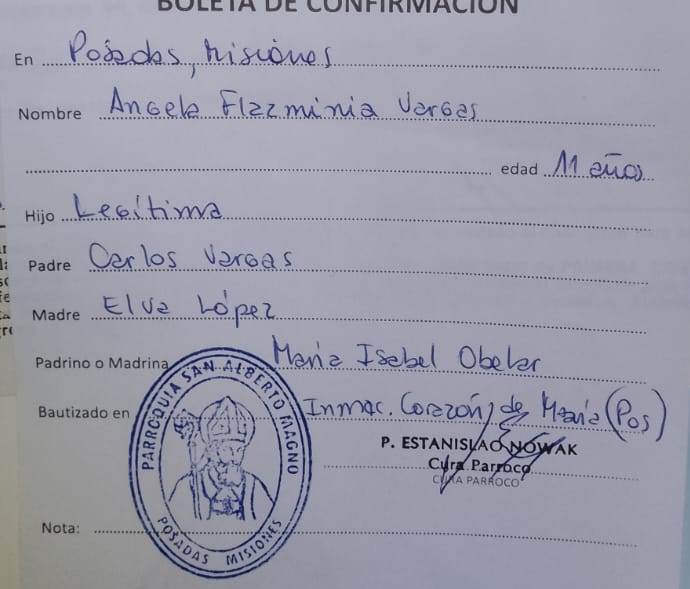 BOLETA DE CONFIRMACIÓN
En Posadas, Misiones
Nombre Angela Flaminia Vargas
edad 11 años
Hijo Legitima
Padre Carlos Vargas
Madre Elva López
Padrino o Madrina Maria Isabel Obelar
Bautizado en Inmac. Corazón de Maria (Pos)
P. ESTANISLAO NOWAK
Cura Párroco
CURA PARROCO
Nota:
PARROQUIA SAN ALBERTO MAGNO
POSADAS MISIONES